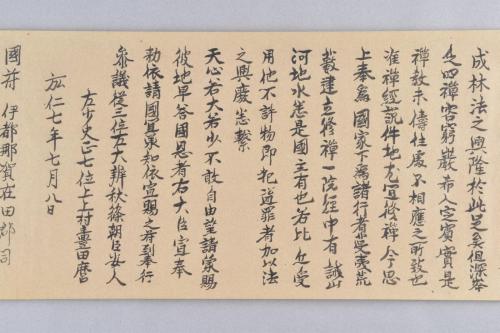 成林法之興隆於此足矣但深峯
乏四禅客窮巌希入定賓實是
禅教未傳住處不相應之所致也
准禅經説件地尤宜修禅今思
上奉為國家下為諸行者芟夷荒
薮建立修禅一院經中有誡山
河地水悉是國主有也若比丘受
用他不許物即犯盗罪者加以法
之興廢悉繋
天心若大若少不敢自由望請蒙賜
彼地早答國恩者右大臣宣奉
勅依請國宜承知依宣賜之符到奉行
参議從三位左大辨秋篠朝臣安人
左少史正七位上上村主豊田麿
弘仁七年七月八日
國符 伊都那賀在田郡司